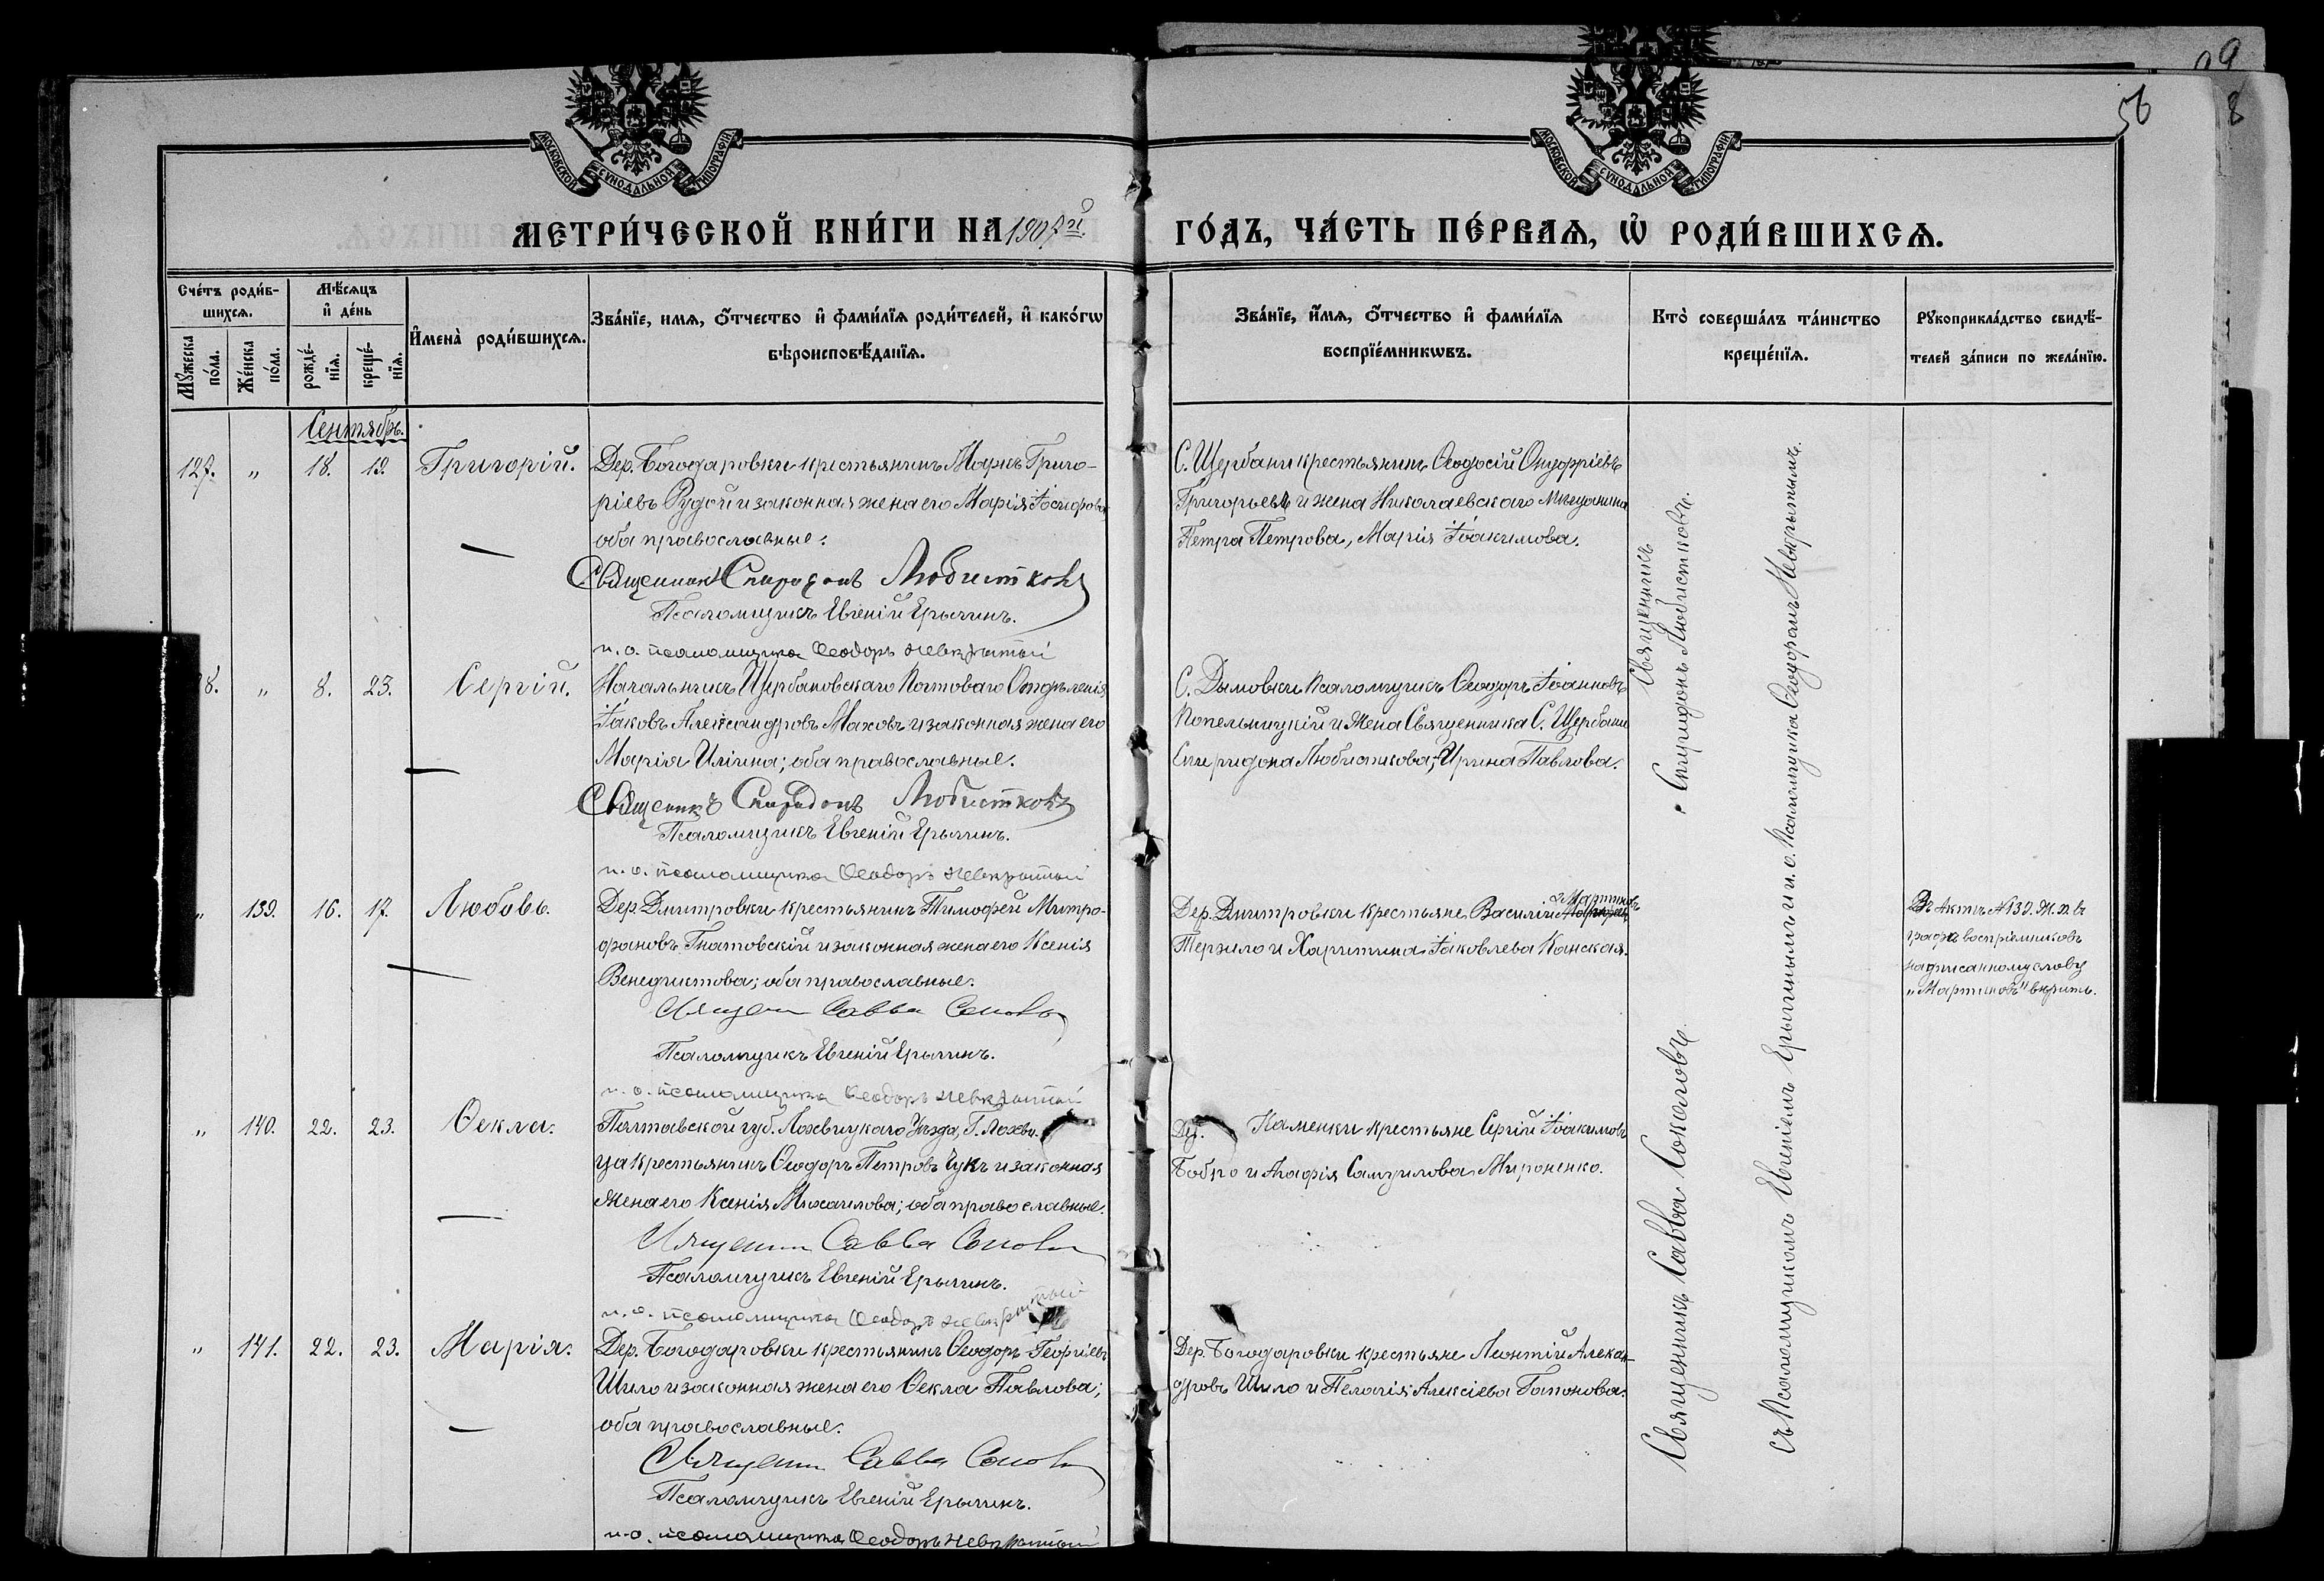 56
9
8
МОСКОВСКОЙ СѴНОДАЛЬНОЙ ТИПОГРАФІИ
МОСКОВСКОЙ СѴНОДАЛЬНОЙ ТИПОГРАФІИ
МЕТРИ́ЧЕСКОЙ КНИ́ГИ НА 1907й. ГО́ДЪ, ЧА́СТЬ ПЕ́РВАѦ, Ѡ҆ РОДИ́ВШИХСѦ.
Счéтъ роди́в-
шихсѧ.
Мꙋ́жеска по́ла.
Же́нска по́ла.
Мѣ́сѧцъ
и҆ де́нь
рожде́-нїѧ.
креще́-нїѧ.
И҆мена̀ роди́вшихсѧ.
Зва́нїе, имѧ, ѻ҆́тчество и҆ фами́лїѧ роди́телей, и҆ како́гѡ
вѣроисповѣ́данїѧ.
Зва́нїе, и҆́мѧ, ѻ҆́тчество и҆ фами́лїѧ
воспрїе́мникѡвъ.
Кто̀ соверша́лъ та́инство
креще́нїѧ.
Рꙋкоприкла́дство свидѣ́-
телей за́писи по жела́нїю.
Сентябрь.
127. " 18. 19. Григорій.
Дер. Богодаровки крестьянинъ Маркъ Григо-
ріевъ Рудой и законная жена его Марія Іосифова
оба православные.
Священникъ Спиридонъ Любистковъ
Псаломщикъ Евгеній Ерыгинъ.
и. о. псаломщика Ѳеодоръ Невкрытый
С. Щербани крестьянинъ Ѳеодосій Онуфріевъ
Григорьевъ и жена Николаевскаго мѣщанина
Петра Петрова, Марія Іоакимова.
8. " 8. 23. Сергій.
Начальникъ Щербановскаго Почтоваго Отдѣленія
Іаковъ Александровъ Маховъ и законная жена его
Марія Иліина; оба православные.
Священникъ Спиридонъ Любистковъ
Псаломщикъ Евгеній Ерыгинъ.
и. о. псаломщика Ѳеодоръ Невкрытый
С. Дымовки Псаломщикъ Ѳеодоръ Іоанновъ
Попельницкій и Жена Священника С. Щербани
Спиридона Любисткова, Ирина Павлова.
" 139. 16. 17. Любовь.
Дер. Дмитровки крестьянинъ Тимофей Митро-
фановъ Гнатовскій и законная жена его Ксенія
Венедиктова; оба православные.
Священникъ Савва Соколовъ
Псаломщикъ Евгеній Ерыгинъ.
и. о. псаломщика Ѳеодоръ Невкрытый
Мартиновъ
Дер. Дмитровки крестьяне Василій
Терзило и Харитина Іаковлева Канская.
Въ актѣ №139. Ж. п. въ
графѣ воспріемниковъ
надписанному слову
„Мартиновъ" вѣрить.
" 140. 22. 23. Ѳекла.
Полтавской губ. Лохвицкаго Уѣзда, Г. Лохви-
ца крестьянинъ Ѳеодоръ Петровъ Чукъ и законная
жена его Ксенія Михаилова; оба православные.
Священникъ Савва Соколовъ
Псаломщикъ Евгеній Ерыгинъ.
и. о. псаломщика Ѳеодоръ Невкрытый
Дер. Каменки крестьяне Сергій Іоакимовъ
Бобро и Агафія Самуилова Мироненко.
" 141. 22. 23. Марія.
Дер. Богодаровки крестьянинъ Ѳеодоръ Георгіевъ
Шило и законная жена его Ѳекла Павлова;
оба православные.
Священникъ Савва Соколовъ
Псаломщикъ Евгеній Ерыгинъ.
и. о. псаломщика Ѳеодоръ Невкрытый
Дер. Богодаровки крестьяне Леонтій Алексан-
дровъ Шило и Пелагія Алексіева Гапонова.
Священникъ
Спиридонъ Любистковъ.
Священникъ Савва Соколовъ
съ Псаломщикомъ Евгеніемъ Ерыгинымъ и и. о. Псаломщика Ѳеодоромъ Невкрытымъ.